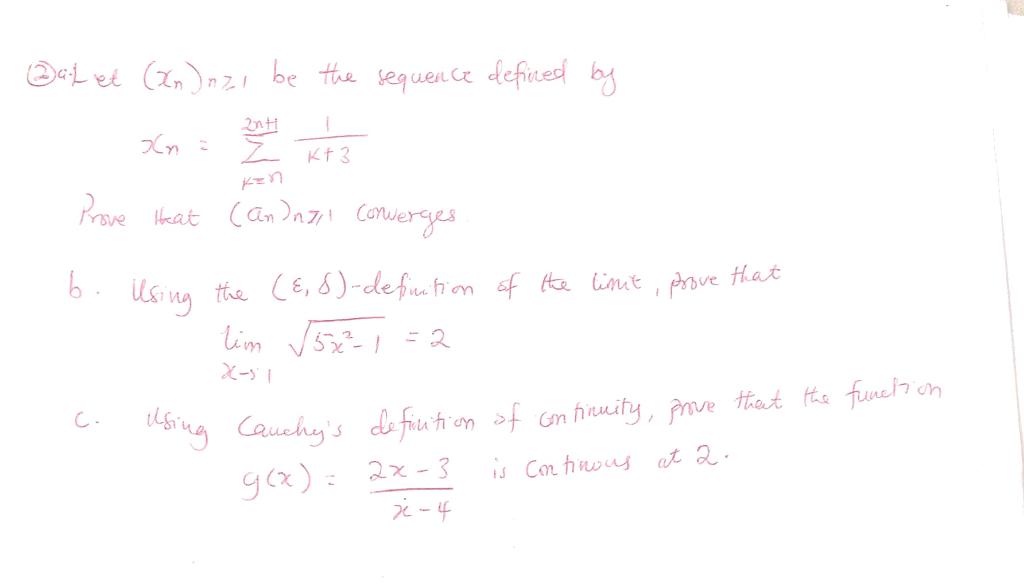 ② a. Let (xn)n≥1 be the sequence defined by
xn = 2n+1 Σ k=n 1/k+3
Prove that (an)n≥1 converges.
b. Using the (ε, δ)-definition of the limit, prove that
lim x→1 √5x²-1 = 2
c. Using Cauchy's definition of continuity, prove that the function
g(x) = 2x-3 / x-4 is continous at 2.